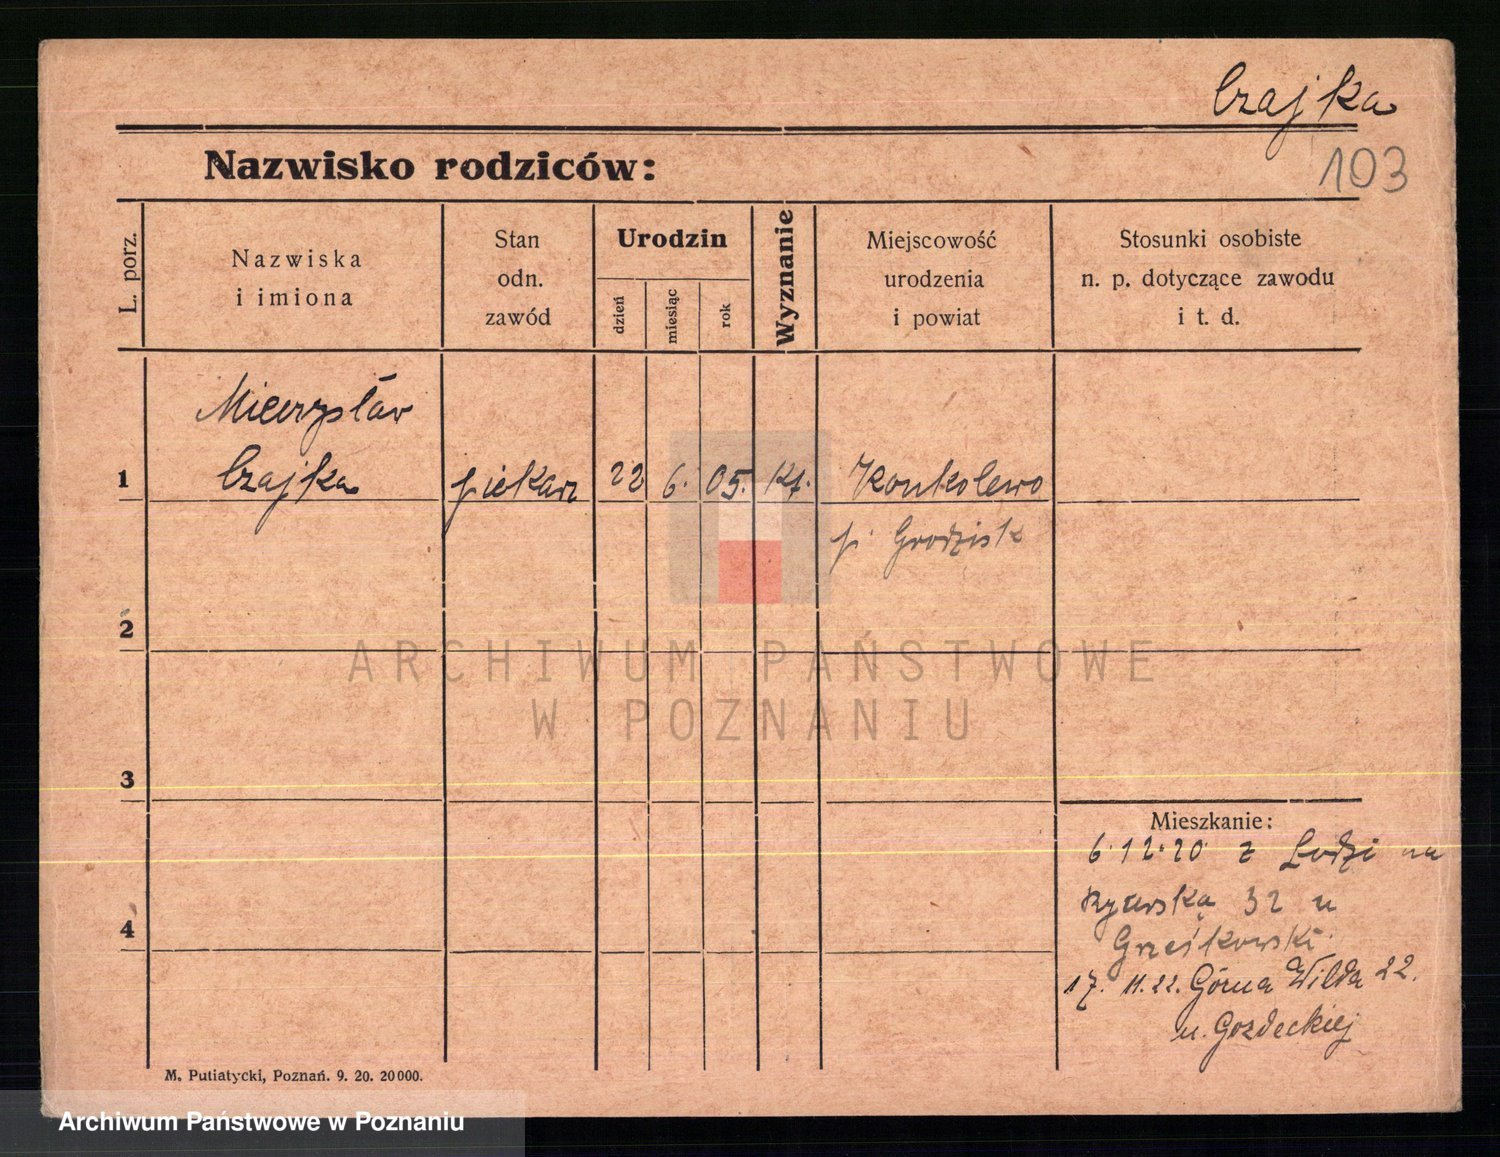 Czajka
103
Nazwisko rodziców:
L. porz.
Nazwiska
i imiona
Stan
odn.
zawód
Urodzin
dzień
miesiąc
rok
Wyznanie
Miejscowość
urodzenia
i powiat
Stosunki osobiste
n. p. dotyczące zawodu
i t. d.
Mieczysław
1 Czajka piekarz 22 6. 05. kt. Konkolewo
p. Grodzisk
2
ARCHIWUM PAŃSTWOWE
W POZNANIU
3
Mieszkanie:
6.12.20 z Lodzi na
32 u
4
17. 11.22. Górna Wilda 22.
u. Gozdeckiej
M. Putiatycki, Poznań. 9. 20. 20000.
Archiwum Państwowe w Poznaniu